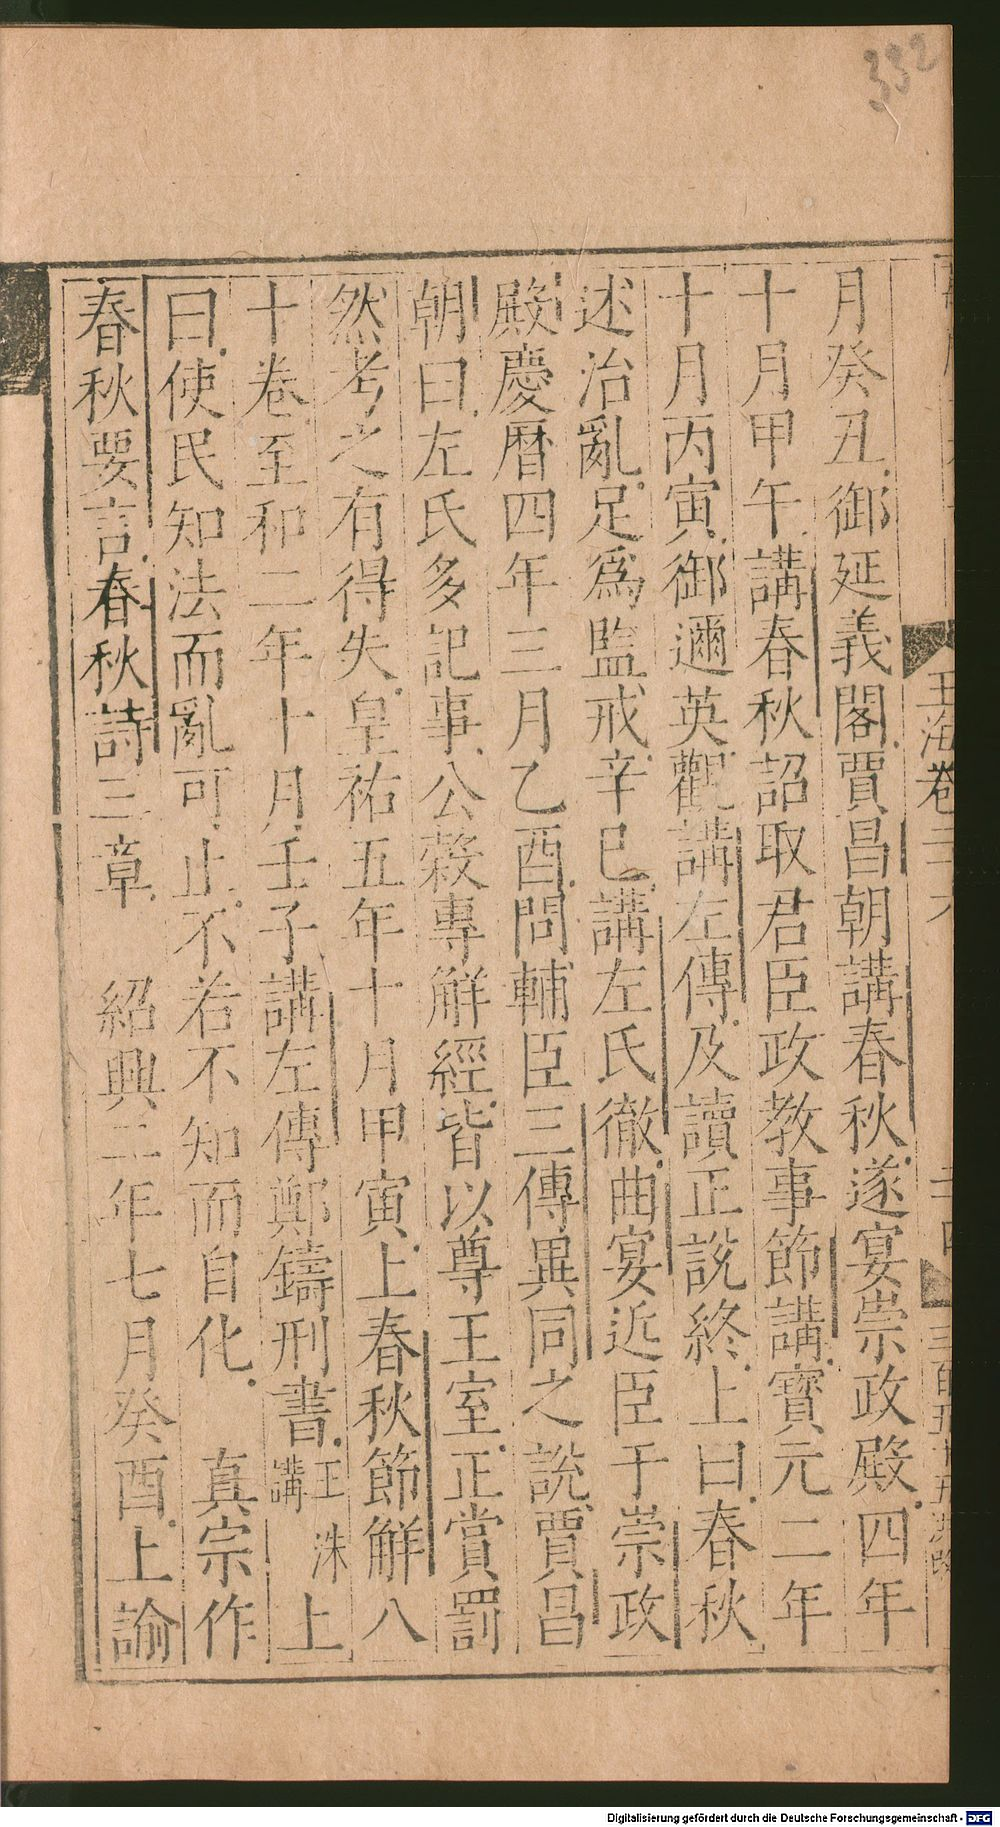 332
月癸丑御延義閣賈昌朝講春秋遂宴崇政殿四年
十月甲午講春秋詔取君臣政教事節講寳元二年
十月丙寅御邇英觀講左傳及讀正說終上曰春秋
述治亂足爲監戒辛巳講左氏徹曲宴近臣于崇政
殿慶曆四年三月乙酉問輔臣三傳異同之說賈昌
朝曰左氏多記事公榖專解經皆以尊王室正賞罰
然考之有得失皇祐五年十月甲寅上春秋節解八
十卷至和二年十月壬子講左傳鄭鑄刑書王洙講上
曰使民知法而亂可止不若不知而自化　真宗作
春秋要言春秋詩三章　紹興二年七月癸酉上諭
Digitalisierung gefördert durch die Deutsche Forschungsgemeinschaft - DFG